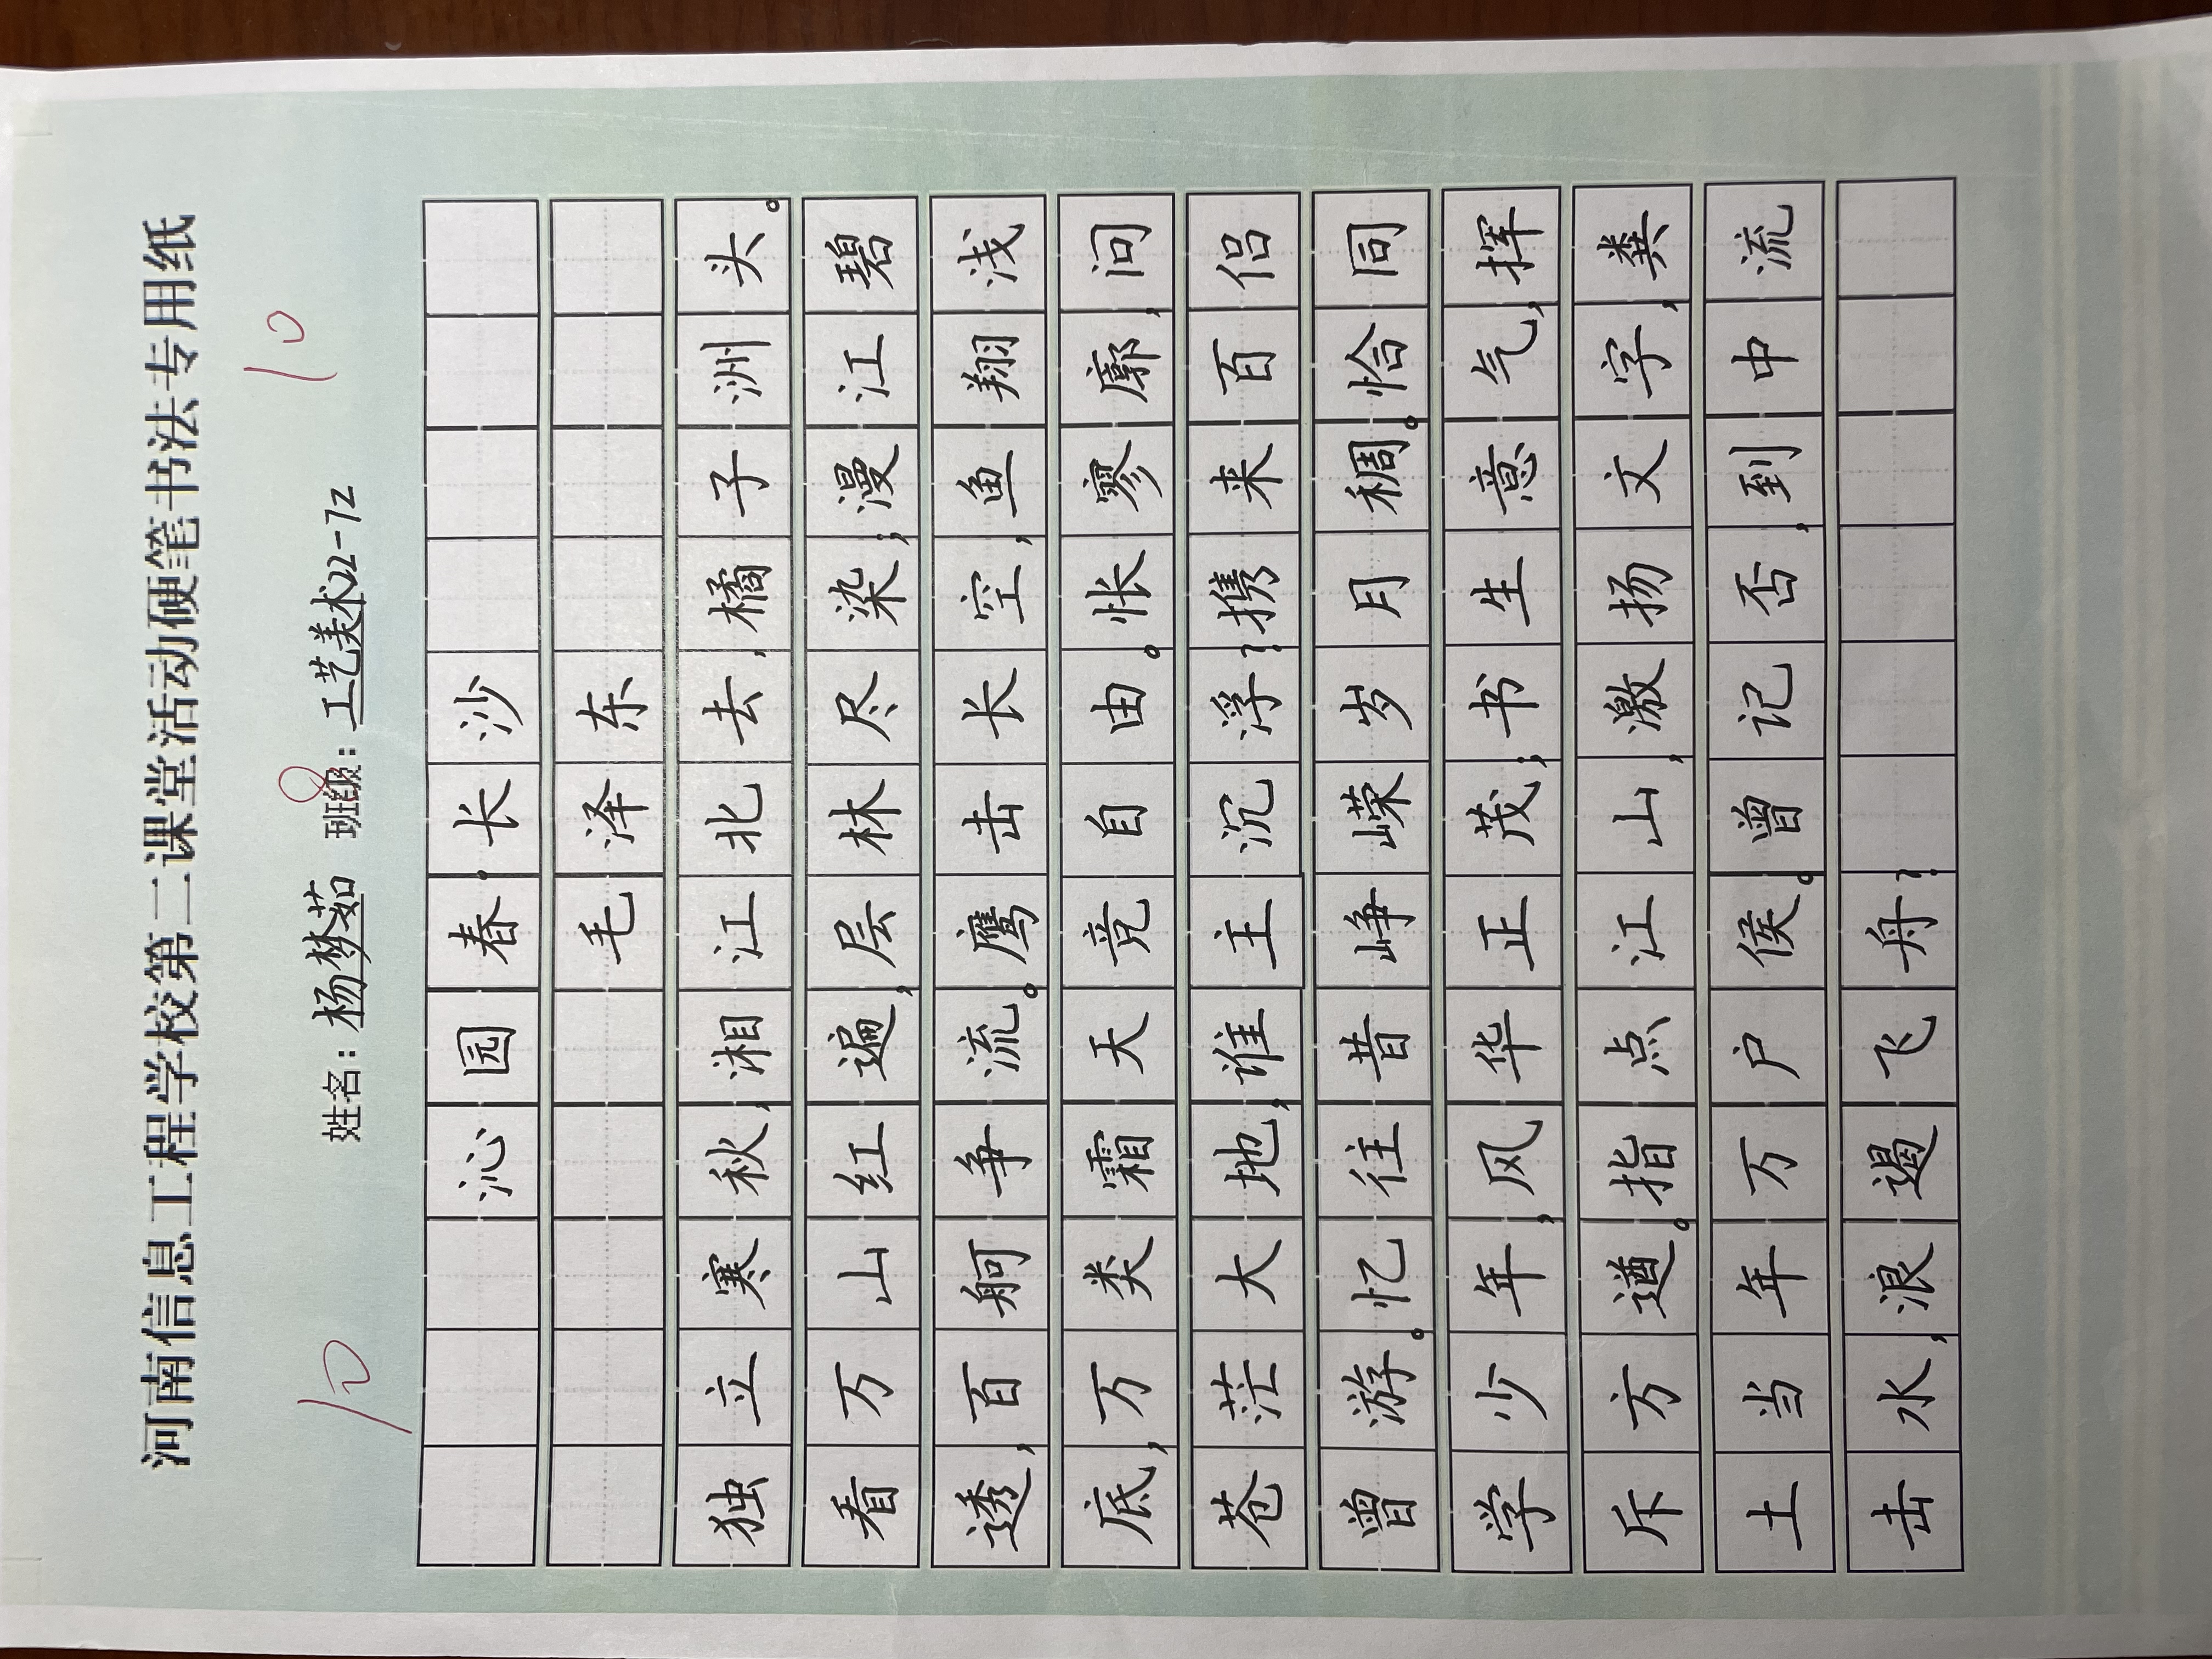 河南信息工程学校第二课堂活动硬笔书法专用纸
10 8 10
姓名：杨梦茹 班级：工艺美术22-72
沁园春·长沙
毛泽东
独立寒秋，湘江北去，橘子洲头。
看万山红遍，层林尽染；漫江碧
透，百舸争流。鹰击长空，鱼翔浅
底，万类霜天竞自由。怅寥廓，问
苍茫大地，谁主沉浮？携来百侣
曾游。忆往昔峥嵘岁月稠。恰同
学少年，风华正茂；书生意气，挥
斥方遒。指点江山，激扬文字，粪
土当年万户侯。曾记否，到中流
击水，浪遏飞舟？